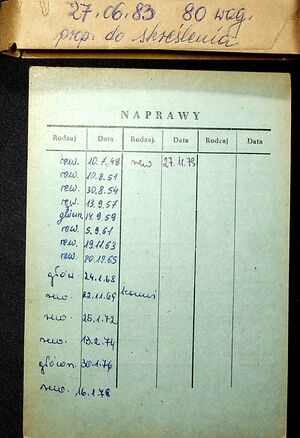 27.06.83 80 wag.
prop. do skreślenia
NAPRAWY
Rodzaj Data Rodzaj Data Rodzaj Data
rew. 10.7.48 rew 27.11.79
rew. 10.8.51
rew. 30.8.54
rew. 13.9.57
główn. 14.9.59
rew. 5.9.61
rew. 19.11.63
rew. 20.12.65
główn. 24.1.68
rew. 22.11.69
rew. 25.1.72
rew. 13.2.74
główn. 30.1.76
rew. 16.1.78